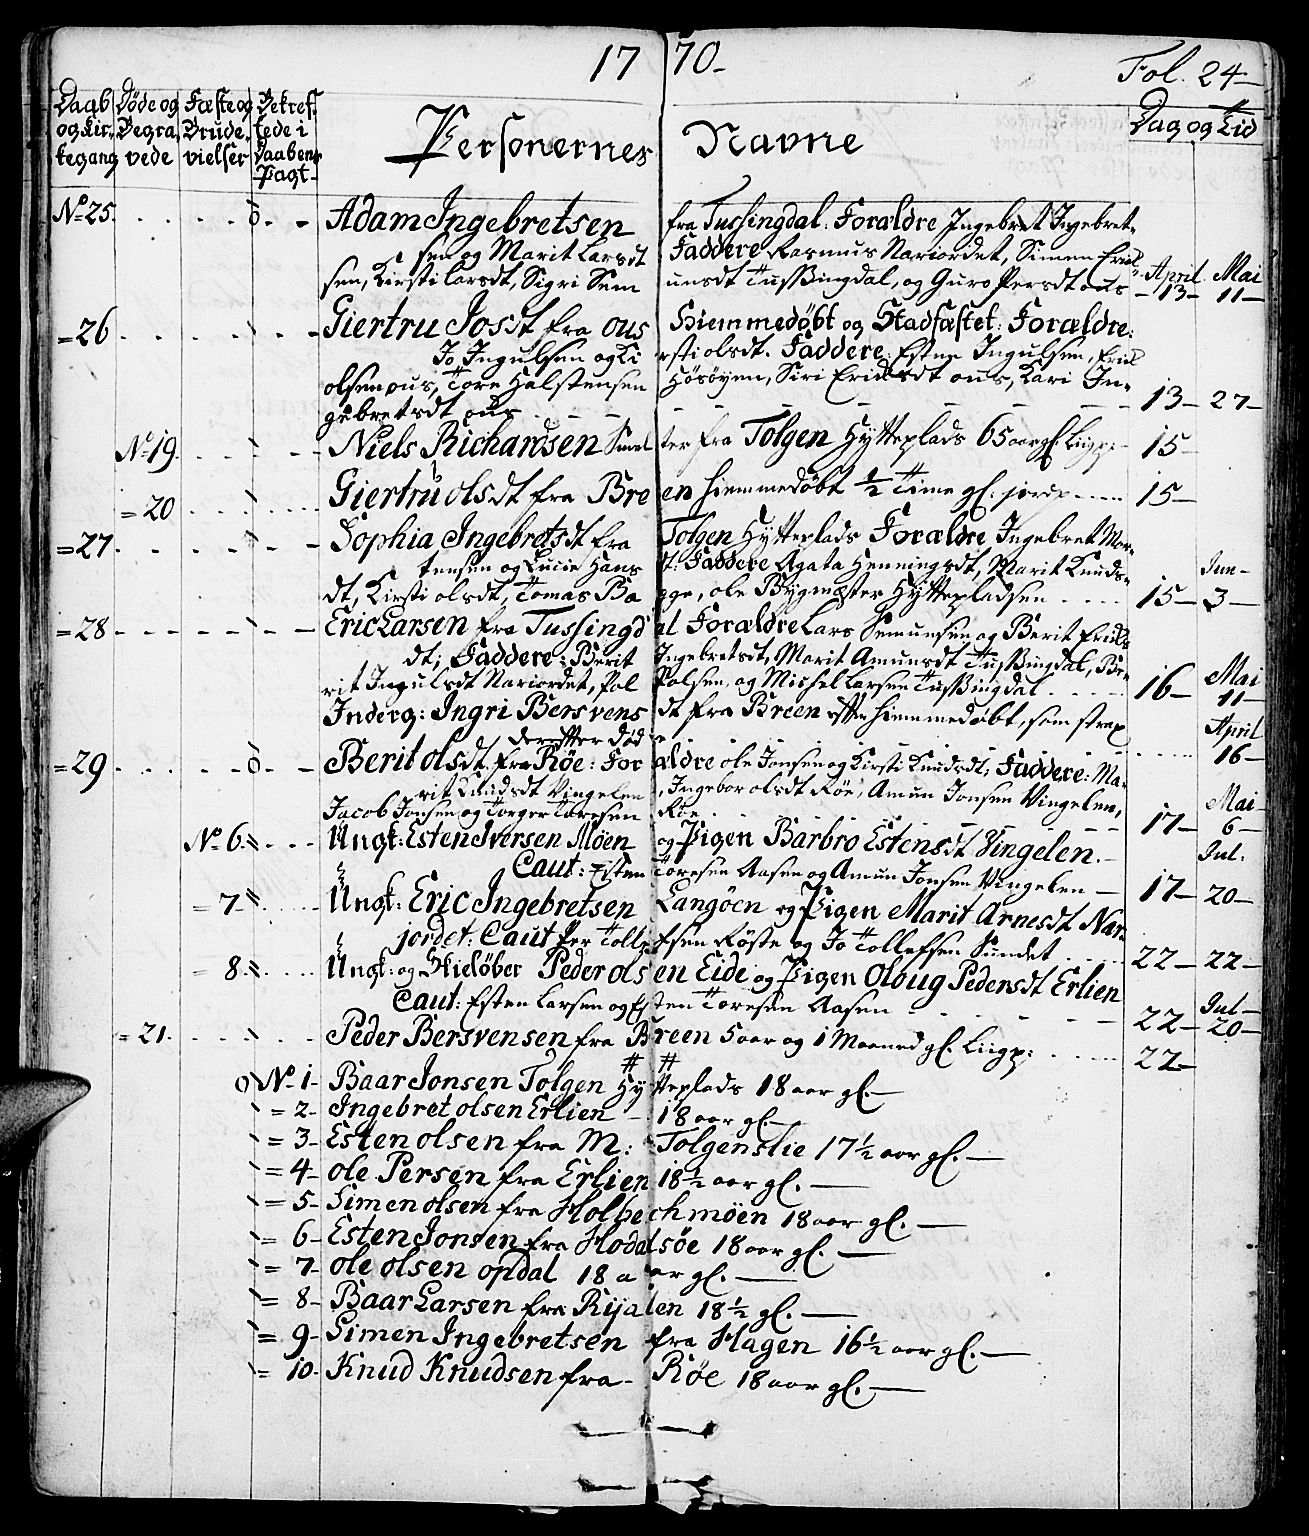 1770 Fol. 24
Daab og Kirkegang Døde og Begravede Fæste og Brudevielser Bekreftede i Daabens Pagt Personernes Navne Dag og Tid
No 25 Adam Ingebretsen fra Tussingdal. Forældre Ingebret Ingebret-
sen og Marit Larsdt Faddere Rasmus Nariordet, Simen Erich-
sen, Kirsti Larsdt, Sigri Sem unsdt Tussingdal, og Guro Persdt ous April 13 Mai 11
= 26 Giertru Josdt fra ous Hiemmedøbt og Stadfæstet: Forældre:
Jo Ingulsen og Ki rsti olsdt. Faddere: Esten Ingulsen, Erich
olsen ous, Tore Halstensen Høsøyen, Siri Erichsdt ous, Kari In-
gebretsdt ous 13 27
No 19 Niels Richardsen Smelter fra Tolgen Hytteplads 65 aar gl. Liigp: 15
= 20 Giertru olsdt fra Breen hiemmedøbt ½ Time gl. jordp 15
= 27 Sophia Ingebretsdt fra Tolgen Hytteplads Forældre Ingebret Mor-
tensen og Lucie Hans dt: Faddere Agata Henningsdt, Marit Knuds-
dt, Kirsti olsdt, Tomas Bagge, ole Bygmester Hyttepladsen 15 Jun 3
= 28 Eric Larsen fra Tussingdal Forældre Lars Semunsen og Berit Erichs
dt; Faddere: Berit Ingebretsdt, Marit Amunsdt Tussingdal, Be-
rit Ingulsdt Nariordet, Pol Polsen, og Michel Larsen Tussingdal 16 Mai 11
Inderq: Ingri Bersvensdt fra Breen efter hiemmedøbt, som strax April
derefter døde 16
= 29 Berit olsdt fra Røe: Forældre ole Jonsen og Kirsti Knudsdt; Faddere: Ma-
rit Knudsdt Vingelen, Ingebor olsdt Røe, Amun Jonsen Vingelen,
Jacob Jonsen og Torger Toresen Røe 17 Mai 6
No 6 Ungk: Esten Iversen Moen og Pigen Barbro Estensdt Vingelen.
Caut: Esten Toresen Aasen og Amun Jonsen Vingelen 17 Jul. 20
= 7 Ungk: Eric Ingebretsen Langøen og Pigen Marit Arnesdt Nar-
jordet: Caut Per Tollefsen Røste og Jo Tollefsen Sundet 22 22
= 8 Ungk: og Skieløber Peder olsen Eide og Pigen Oloug Pedersdt Erlien
Caut: Esten Larsen og Esten Toresen Aasen 22 Jul 20
= 21 Peder Bersvensen fra Breen 5 aar og 1 Maaned gl. Liigp: 22
No 1 Baar Jonsen Tolgen Hytteplads 18 aar gl.
= 2 Ingebret olsen Erlien 18 aar gl.
= 3 Esten olsen fra M: Tolgenslie 17½ aar gl.
= 4 ole Persen fra Erlien 18½ aar gl.
= 5 Simen olsen fra Holbechmøen 18 aar gl.
= 6 Esten Jonsen fra Hodalsøe 18 aar gl.
= 7 ole olsen opdal 18 aar gl.
= 8 Baar Larsen fra Rijalen 18½ gl.
= 9 Simen Ingebretsen fra Hagen 16½ aar gl.
= 10 Knud Knudsen fra Røe 18 aar gl.